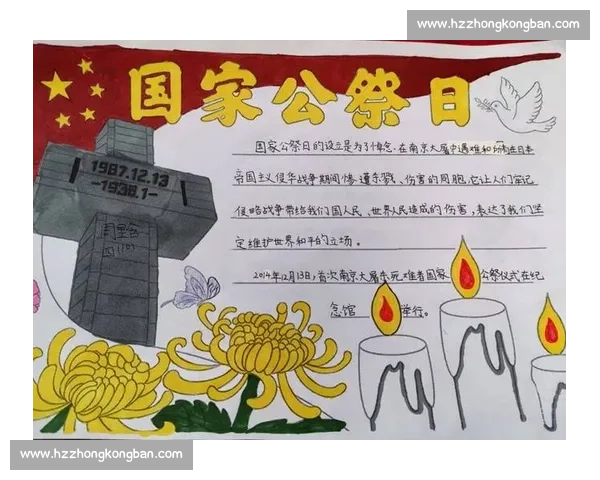 www.hzzhongkongban.com
国家公祭日
国家公祭日的设立是为了悼念在南京大屠中遇难和所有在日本
帝国主义侵华战争期间惨遭杀戮、伤害的同胞,它让人们牢记
侵略战争带给我们国人民、世界人民造成的伤害,表达了我们坚
定维护世界和平的立场。
2014年12月13日,首次南京大屠杀死难者国家公祭仪式在纪
念馆举行。
1987.12.13
-1938.1-
www.hzzhongkongban.com